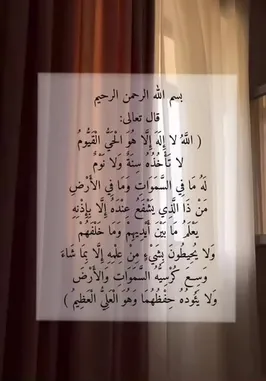 بسم الله الرحمن الرحيم
قال تعالى:
( اللَّهُ لا إِلَهَ إِلَّا هُوَ الْحَيُّ الْقَيُّومُ
لا تَأْخُذُهُ سِنَةٌ وَلا نَوْمٌ
لَهُ مَا فِي السَّمَوَاتِ وَمَا فِي الْأَرْضِ
مَنْ ذَا الَّذِي يَشْفَعُ عِنْدَهُ إِلَّا بِإِذْنِهِ
يَعْلَمُ مَا بَيْنَ أَيْدِيهِمْ وَمَا خَلْفَهُمْ
وَلا يُحِيطُونَ بِشَيْءٍ مِنْ عِلْمِهِ إِلَّا بِمَا شَاءَ
وَسِعَ كُرْسِيُّهُ السَّمَوَاتِ وَالْأَرْضَ
وَلا يَئُودُهُ حِفْظُهُمَا وَهُوَ الْعَلِيُّ الْعَظِيمُ )